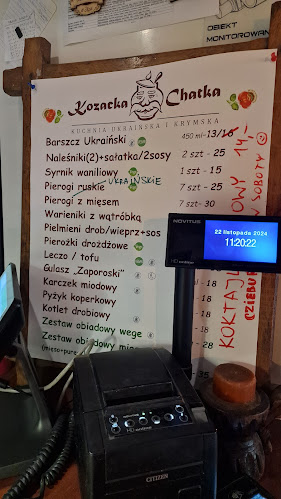 OBIEKT
MONITOROWAN
Kozacka Chatka
KUCHNIA UKRAIŃSKA I KRYMSKA
Barszcz Ukraiński 450 ml-13/16
Naleśniki(2)+sałatka/2sosy 2 szt - 25
Syrnik waniliowy 1 szt - 15
Pierogi ruskie UKRAIŃSKIE 7 szt - 25
Pierogi z mięsem 7 szt- 30
Warieniki z wątróbką
Pielmieni drob/wieprz+sos
Pierożki drożdżowe
Leczo / tofu
Gulasz „Zaporoski"
Karczek miodowy
Pyżyk koperkowy
Kotlet drobiowy
Zestaw obiadowy wege
Zestaw obiadowy
(mięso+pure
NOVITUS
22 listopada 2024
11:20:22
HD
KOKTAJL
OWY 14,-
W SOBOTY
CITIZEN